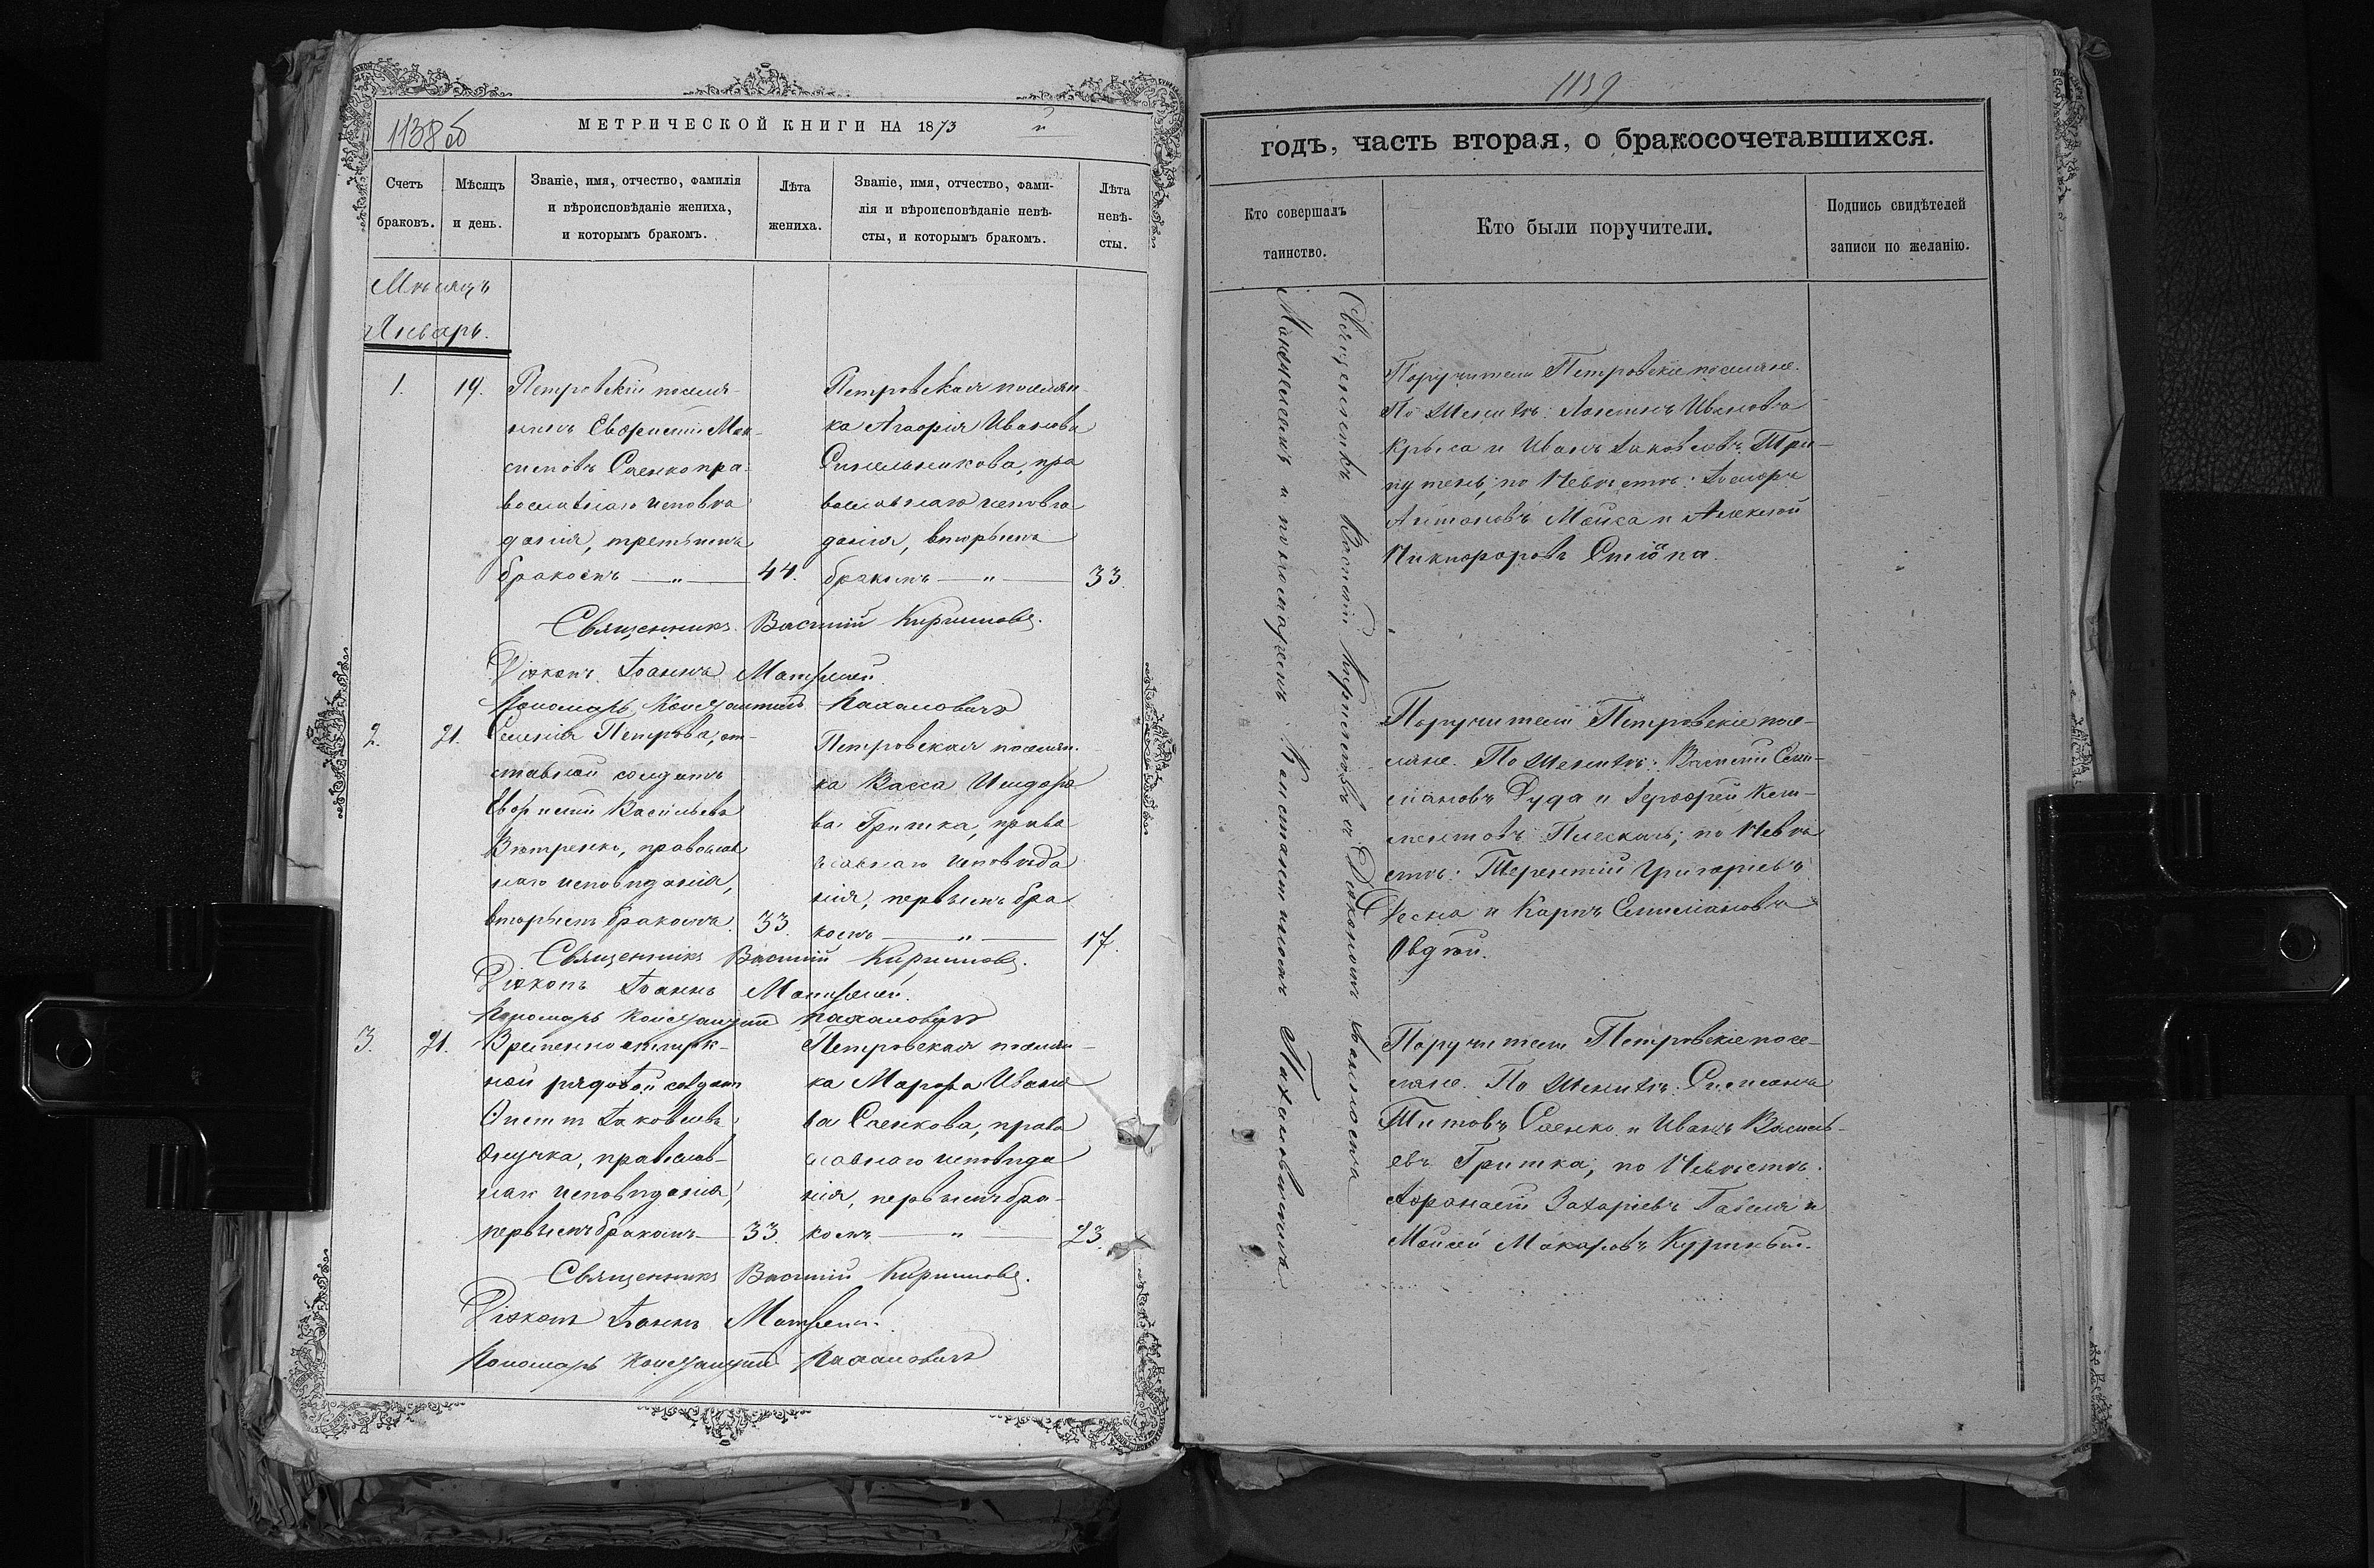 1138 об
МЕТРИЧЕСКОЙ КНИГИ НА 1873 й
Счетъ браковъ.
Мѣсяцъ и день.
Званіе, имя, отчество, фамилія
и вѣроисповѣданіе жениха,
и которымъ бракомъ.
Лѣта
жениха.
Званіе, имя, отчество, фами-
лія и вѣроисповѣданіе невѣ-
сты, и которымъ бракомъ.
Лѣта
невѣ-
сты.
Мѣсяцъ
Январь.
1.
19.
Петровскій поселя-
нинъ Евфимій Мак-
симовъ Саенко пра-
вославнаго исповѣ
данія, третьимъ
бракомъ — „ — 44.
Петровская поселян-
ка Агафія Иванова
Синельникова, пра
вославнаго исповѣ
данія, вторымъ
бракомъ — „ — 33.
Священникъ Василій Кириловъ.
Діаконъ Іоаннъ
Пономарь Константинъ
2.
21.
Селенія Петрова, от-
ставной солдатъ
Евфимій Васильевъ
Вѣтренко, православ
наго исповѣданія,
вторымъ бракомъ. 33.
Петровская поселян-
ка Васса Исидоро
ва Гришка, право
славнаго исповѣда
нія, первымъ бра
комъ — „ — 17.
Священникъ Василій Кириловъ.
Діаконъ Іоаннъ
Пономарь Константинъ
3.
21.
Временно отпуск-
ной рядовой солдатъ
Яковлевъ
Онучка, православ-
наго исповѣданія,
первымъ бракомъ — 33.
Петровская поселян-
ка Марфа Ивано
ва Саенкова, право
славнаго исповѣда
нія, первымъ бра-
комъ — „ — 23.
Священникъ Василій Кириловъ.
Діаконъ Іоаннъ
Пономарь Константинъ
1139
годъ, часть вторая, о бракосочетавшихся.
Кто совершалъ
таинство.
Кто были поручители.
Подпись свидѣтелей
записи по желанію.
Священникъ Василій Кириловъ съ Діакономъ Іоанномъ
и пономаремъ Константиномъ
Поручители Петровскіе поселяне.
По Женихѣ: Ивановъ
Крыса и Иванъ Яковлевъ Три-
путень; по Невѣстѣ:
Антоновъ Мойса и Алексѣй
Никифоровъ
Поручители Петровскіе посе-
ляне. По Женихѣ: Василій Сели-
вановъ Дуда и Кли-
ментовъ; по Невѣ
стѣ: Терентій Григоріевъ
Десна и Карпъ Селивановъ
Овдѣй.
Поручители Петровскіе посе-
ляне. По Женихѣ: Степанъ
Титовъ Саенко и Иванъ Василь-
евъ Гришка; по Невѣстѣ:
Афанасій Захаріевъ и
Моисей Макаровъ